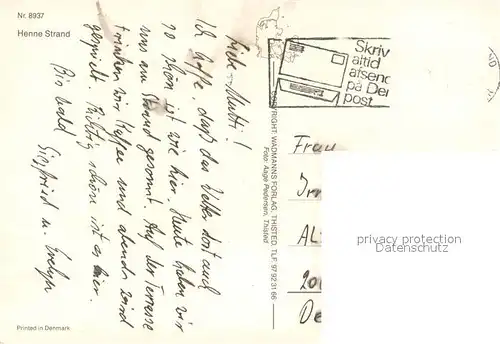 Nr. 8937
Henne Strand
Liebe Mutti!
Ich hoffe, daß das Wetter dort auch
so schön ist wie hier. Heute haben wir
uns am Strand gesonnt. Auf der Terrasse
trinken wir Kaffee und abends wird
gespielt. Richtig schön ist es hier.
Bis bald
Siegfried u. Evelyn
Printed in Denmark
COPYRIGHT: WADMANNS FORLAG, THISTED. TLF. 97 92 31 66
Foto: Aage Pedersen, Thisted
Skriv
altid
afsend
på De
post
Frau
Irm
AL
200
De
privacy protection
oldthing.de